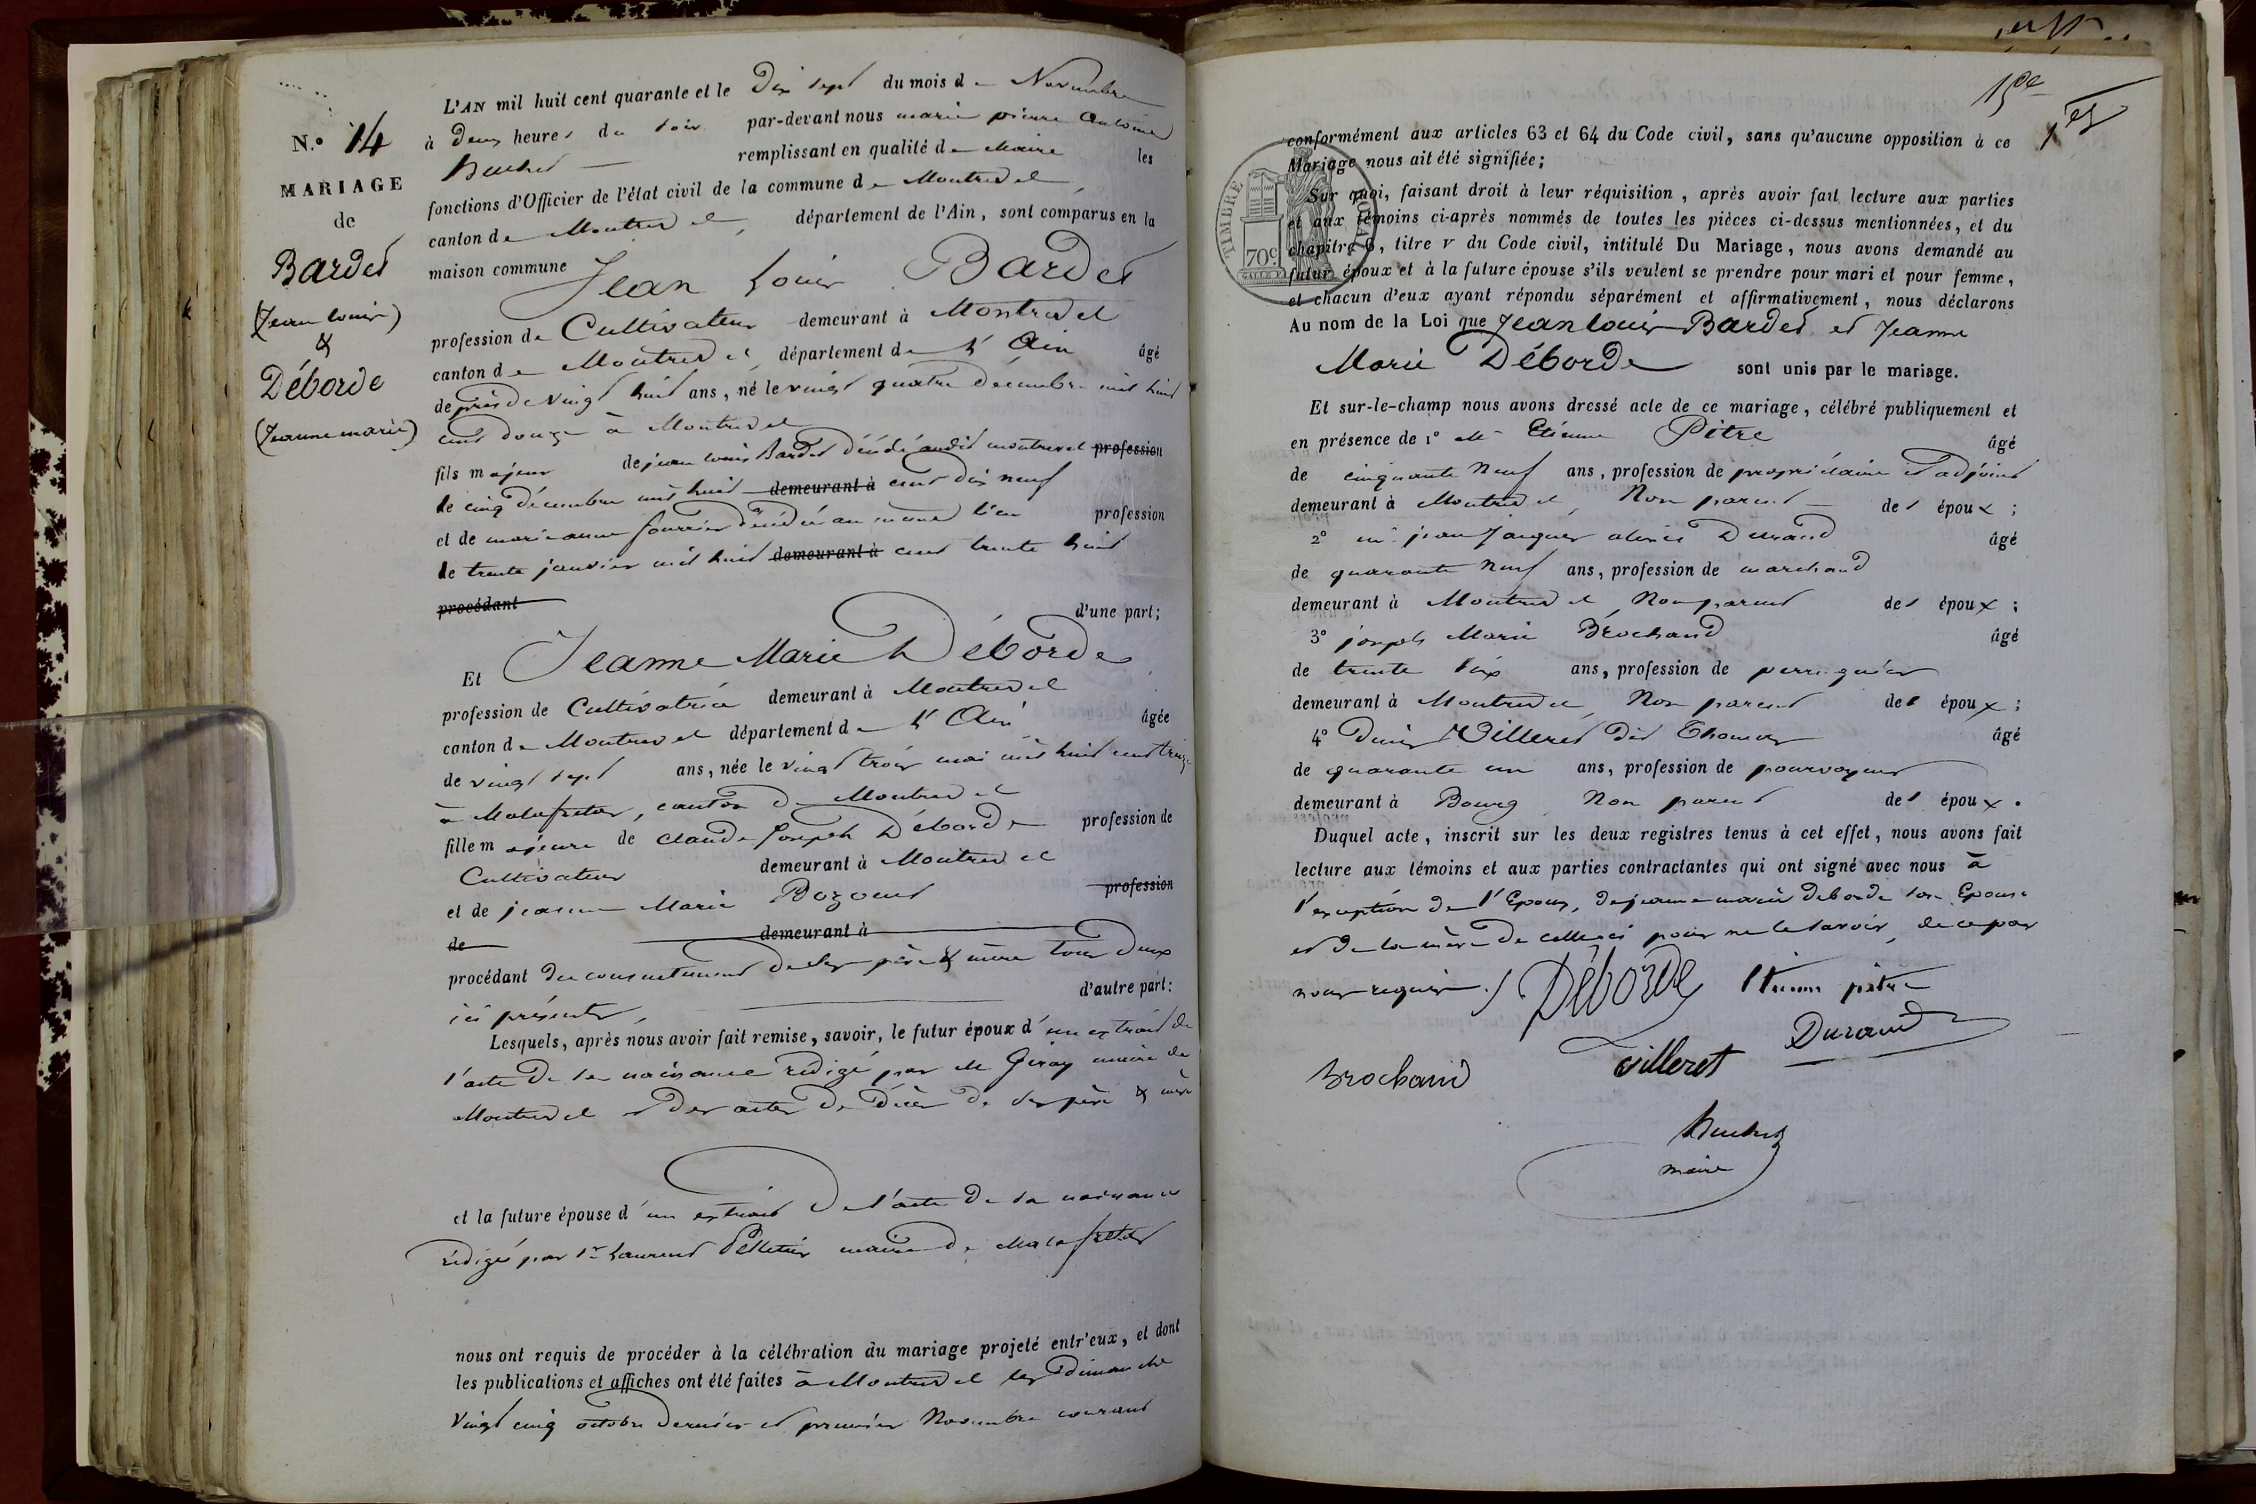 N.o 14
MARIAGE
de
Bardet
(Jean louis)
&
Déborde
(Jeanne marie)
L'AN mil huit cent quarante et le Dix sept du mois de Novembre
à Deux heures du soir par-devant nous marie pierre Antoine
Buchet remplissant en qualité de Maire les
fonctions d'Officier de l'état civil de la commune de Montrevel,
canton de Montrevel, département de l'Ain, sont comparus en la
maison commune Jean Louis Bardet
profession de Cultivateur demeurant à Montrevel
canton de Montrevel, département de L'Ain âgé
de près de vingt huit ans, né le vingt quatre décembre mil huit
cent douze à Montrevel
fils majeur de jean louis Bardet décédé audit montrevel profession
le cinq décembre mil huit demeurant à cent dix neuf
et de marie anne fourrier décédée au même lieu profession
le trente janvier mil huit demeurant à cent trente huit
procédant d'une part;
Et Jeanne Marie Déborde
profession de Cultivatrice demeurant à Montrevel
canton de Montrevel département de L'Ain âgée
de vingt sept ans, née le vingt trois mai mil huit cent treize
à Malafretaz, canton de Montrevel
fille majeure de Claude Joseph Déborde profession de
Cultivateur demeurant à Montrevel
et de jeanne Marie Bozonet profession
de demeurant à
procédant du consentement de ses père & mère tous deux
ici présents, d'autre part:
Lesquels, après nous avoir fait remise, savoir, le futur époux d'un extrait de
l'acte de sa naissance rédigé par M Giroy maire de
Montrevel et des actes de décès de ses père & mère
et la future épouse d'un extrait de l'acte de sa naissance
rédigé par Sr Laurent Pelletier maire de Malafretaz
nous ont requis de procéder à la célébration du mariage projeté entr'eux, et dont
les publications et affiches ont été faites à Montrevel les dimanche
vingt cinq octobre dernier et premier Novembre courant
conformément aux articles 63 et 64 du Code civil, sans qu'aucune opposition à ce
Mariage nous ait été signifiée;
TIMBRE ROYAL
70c
Sur quoi, faisant droit à leur réquisition, après avoir fait lecture aux parties
et aux témoins ci-après nommés de toutes les pièces ci-dessus mentionnées, et du
chapitre 6, titre v du Code civil, intitulé Du Mariage, nous avons demandé au
futur époux et à la future épouse s'ils veulent se prendre pour mari et pour femme,
et chacun d'eux ayant répondu séparément et affirmativement, nous déclarons
Au nom de la Loi que Jean louis Bardet et Jeanne
Marie Déborde sont unis par le mariage.
Et sur-le-champ nous avons dressé acte de ce mariage, célébré publiquement et
en présence de 1o Mr Etienne Pitre âgé
de cinquante neuf ans, profession de propriétaire et adjoint
demeurant à Montrevel, Non parent des époux;
2o mr jean jacques alexis Durand âgé
de quarante neuf ans, profession de marchand
demeurant à Montrevel, Non parent des époux;
3o joseph Marie Brochand âgé
de trente six ans, profession de perruquier
demeurant à Montrevel, Non parent des époux;
4o Denis Villeret dit Thomas âgé
de quarante un ans, profession de pourvoyeur
demeurant à Bourg Non parent des époux.
Duquel acte, inscrit sur les deux registres tenus à cet effet, nous avons fait
lecture aux témoins et aux parties contractantes qui ont signé avec nous à
l'exception de l'Epoux, de jeanne marie deborde son Epouse
et de la mère de celle ci pour ne le savoir, de ce par
nous requis./.
Déborde Etienne pitre
Durand
Brochand Villeret
Buchet
maire